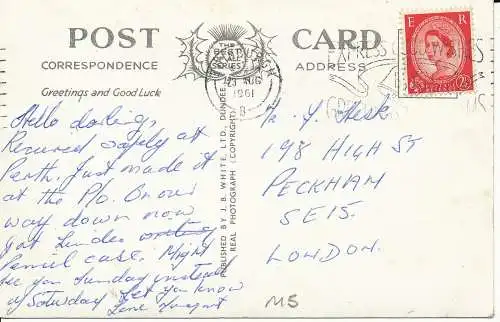 POST CARD
THE BEST OF ALL SERIES
CORRESPONDENCE
ADDRESS
Greetings and Good Luck
E R
2½D
AUG
1961
8-
Hello darling,
Received safely at
Perth. Just made it
at the P/o. On our
way down now
got Lindes
Pencil case. Might
see you Sunday instead
of Saturday Let you know
Love
PUBLISHED BY J. B. WHITE, LTD., DUNDEE
REAL PHOTOGRAPH (COPYRIGHT)
198 HIGH ST
PECKHAM
SE15.
LONDON.
M5